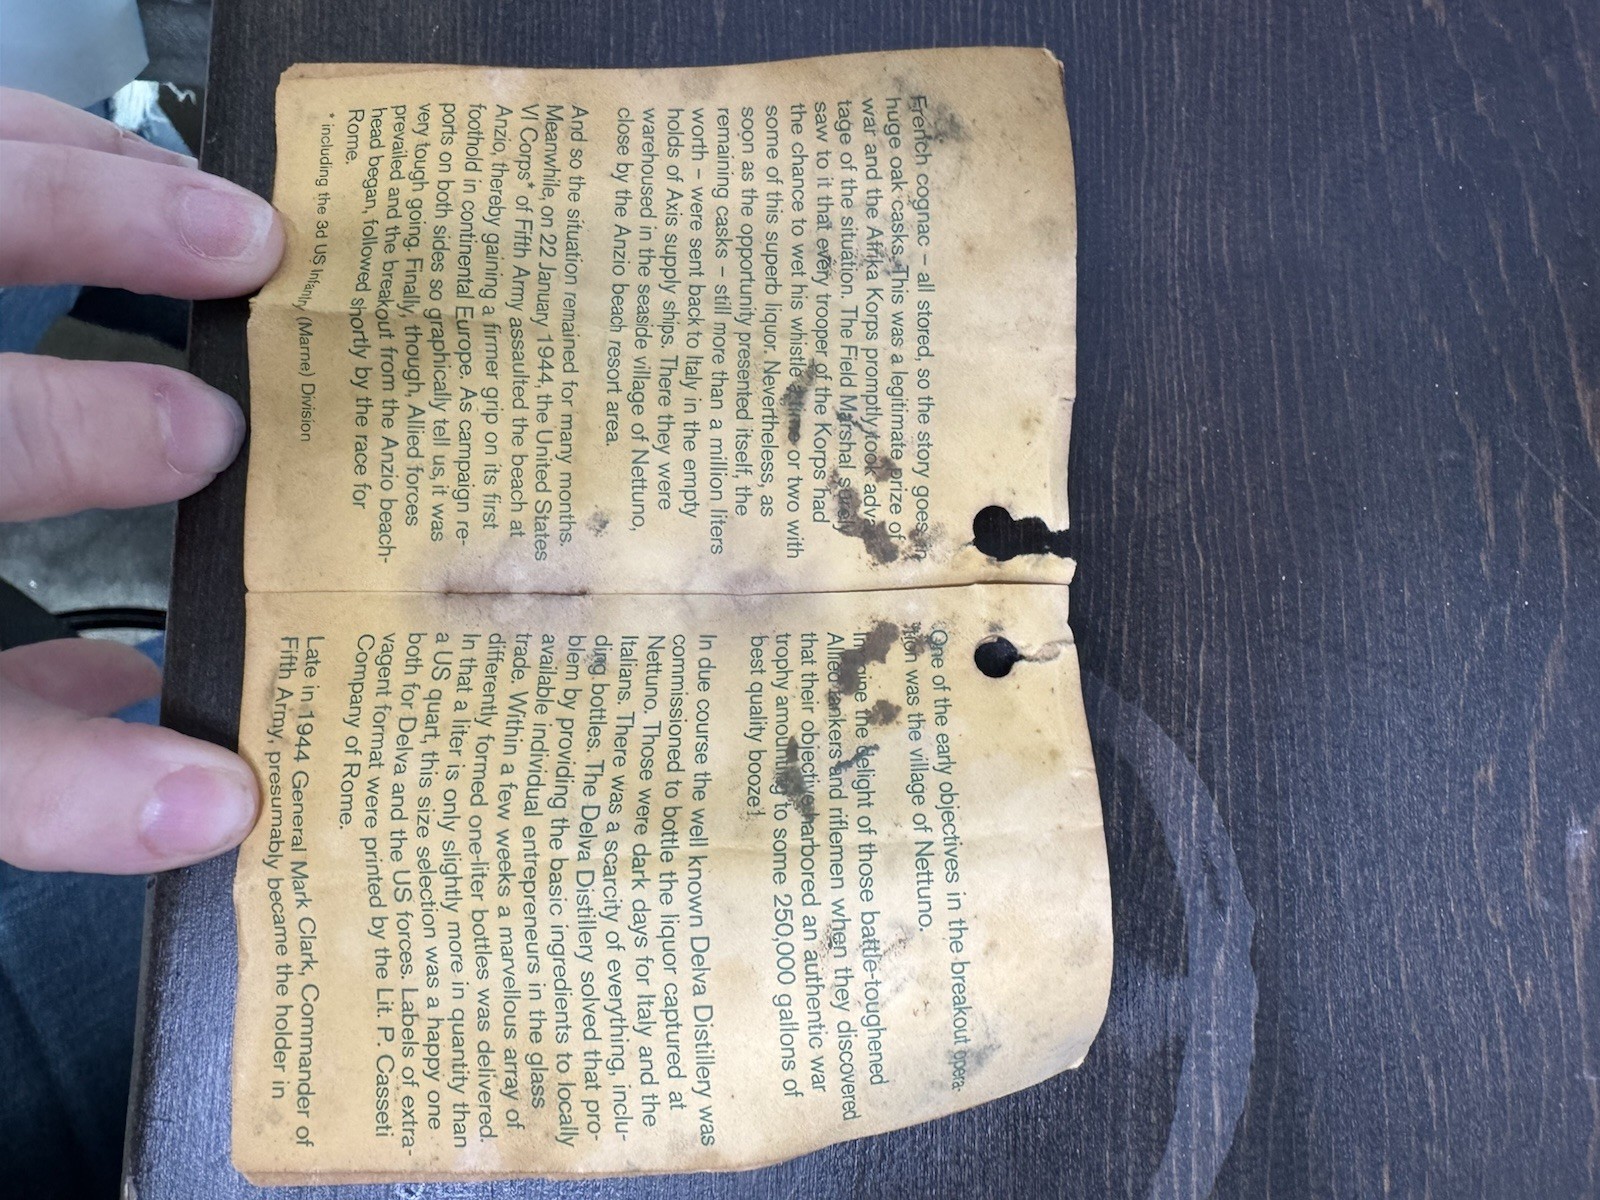 French cognac – all stored, so the story goes in
huge oak casks. This was a legitimate prize of
war and the Afrika Korps promptly took advan-
tage of the situation. The Field Marshal surely
saw to it that every trooper of the Korps had
the chance to wet his whistle a time or two with
some of this superb liquor. Nevertheless, as
soon as the opportunity presented itself, the
remaining casks – still more than a million liters
worth – were sent back to Italy in the empty
holds of Axis supply ships. There they were
warehoused in the seaside village of Nettuno,
close by the Anzio beach resort area.
And so the situation remained for many months.
Meanwhile, on 22 January 1944, the United States
VI Corps* of Fifth Army assaulted the beach at
Anzio, thereby gaining a firmer grip on its first
foothold in continental Europe. As campaign re-
ports on both sides so graphically tell us, it was
very tough going. Finally, though, Allied forces
prevailed and the breakout from the Anzio beach-
head began, followed shortly by the race for
Rome.
* including the 3d US Infantry (Marne) Division
One of the early objectives in the breakout opera-
tion was the village of Nettuno.
Imagine the delight of those battle-toughened
Allied tankers and riflemen when they discovered
that their objective harbored an authentic war
trophy amounting to some 250,000 gallons of
best quality booze!
In due course the well known Delva Distillery was
commissioned to bottle the liquor captured at
Nettuno. Those were dark days for Italy and the
Italians. There was a scarcity of everything, inclu-
ding bottles. The Delva Distillery solved that pro-
blem by providing the basic ingredients to locally
available individual entrepreneurs in the glass
trade. Within a few weeks a marvellous array of
differently formed one-liter bottles was delivered.
In that a liter is only slightly more in quantity than
a US quart, this size selection was a happy one
both for Delva and the US forces. Labels of extra-
vagent format were printed by the Lit. P. Casseti
Company of Rome.
Late in 1944 General Mark Clark, Commander of
Fifth Army, presumably became the holder in